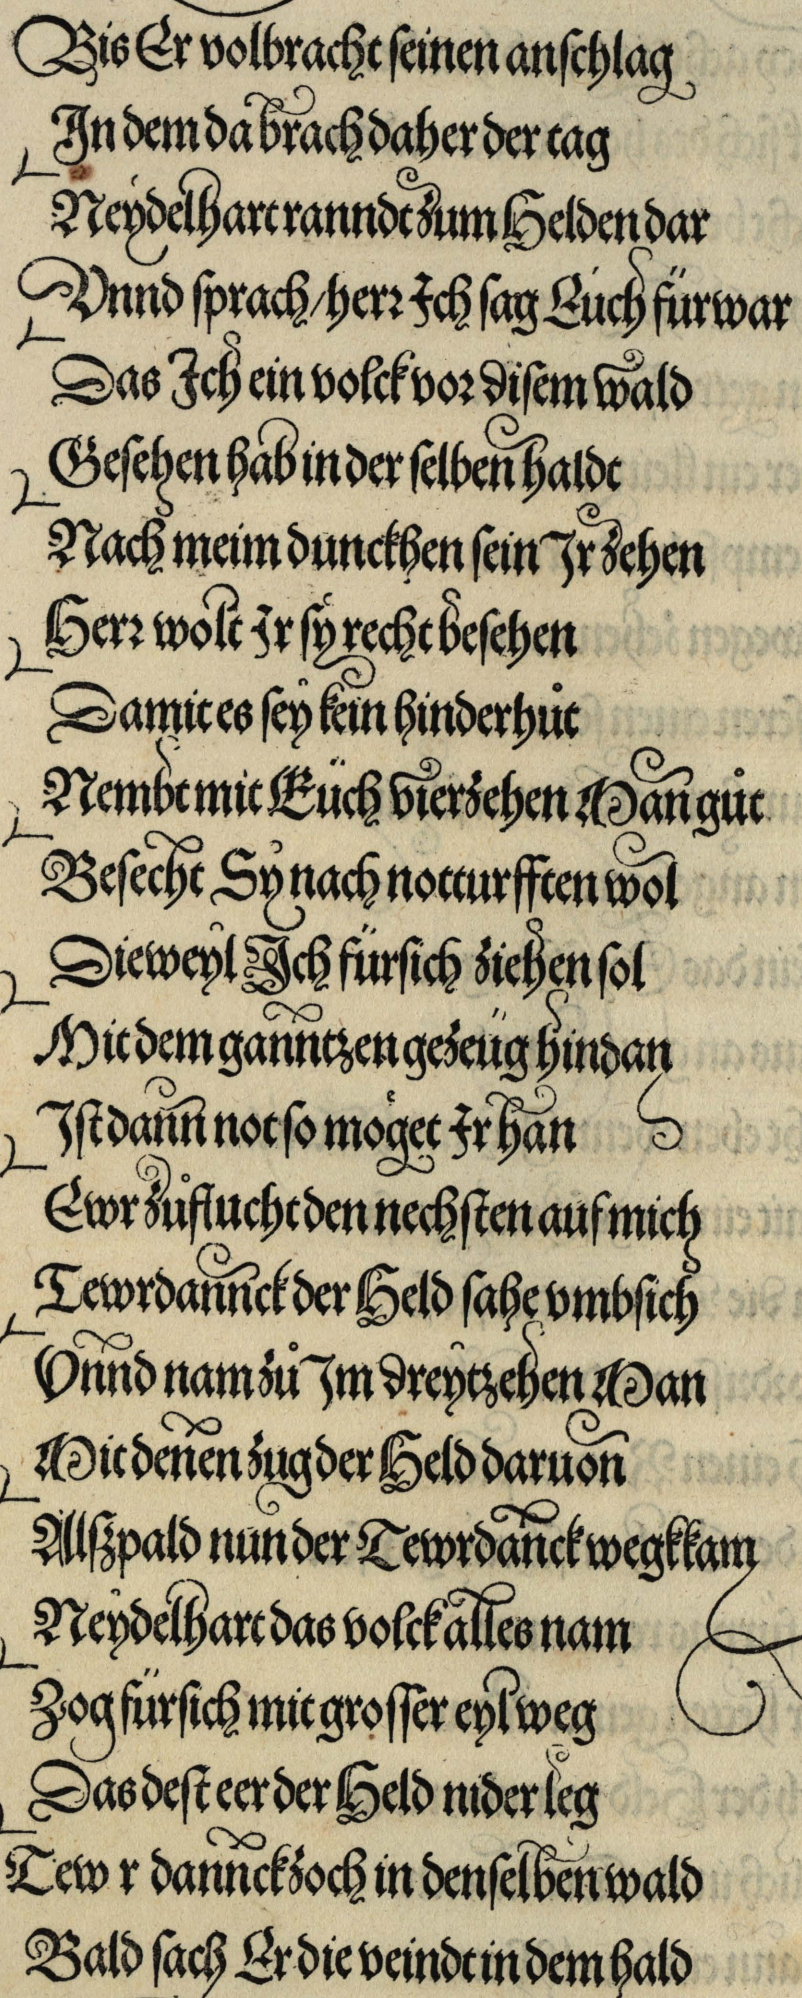 Bis Er volbracht seinen anschlag
In dem da brach daher der tag
Neydelhart ranndt zum Helden dar
Vnnd sprach / herr Ich sag Eüch fürwar
Das Ich ein volck vor disem wald
Gesehen hab in der selben haldt
Nach meim dunckhen sein Ir zehen
Herr wolt Ir sy recht besehen
Damit es sey kein hinderhůt
Nembt mit Eüch vierzehen Man gůt
Besecht Sy nach notturfften wol
Dieweyl Ich fürsich ziehen sol
Mit dem ganntzen gezeüg hindan
Ist dann not so möget Ir han
Ewr zůflucht den nechsten auf mich
Tewrdannck der Held sahe vmbsich
Vnnd nam zů Im dreytzehen Man
Mit denen zug der Held daruon
Alßpald nun der Tewrdanck wegkkam
Neydelhart das volck alles nam
Zog fürsich mit grosser eyl weg
Das dest eer der Held nider leg
Tewrdannck zoch in denselben wald
Bald sach Er die veindt in dem hald